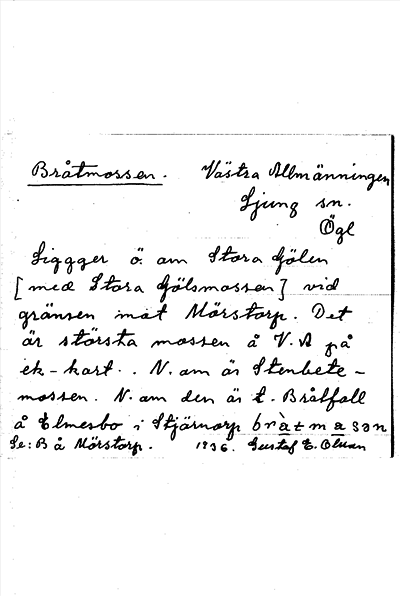 Bråtmossen. Västra Allmänningen
Ljung sn.
Ögl
Liggger ö. om Stora Gölen
[med Stora Gölsmossen] vid
gränsen mot Mörstorp. Det
är största mossen å V.A på
ek-kart. . N. om är Stenbete-
mossen. N. om den är t. Bråtfall
å Elmesbo i Stjärnorp
Se: B å Mörstorp. 1936. Gustaf E. Olsson